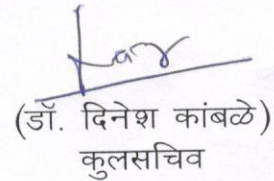 (डॉ. दिनेश कांबळे)
कुलसचिव